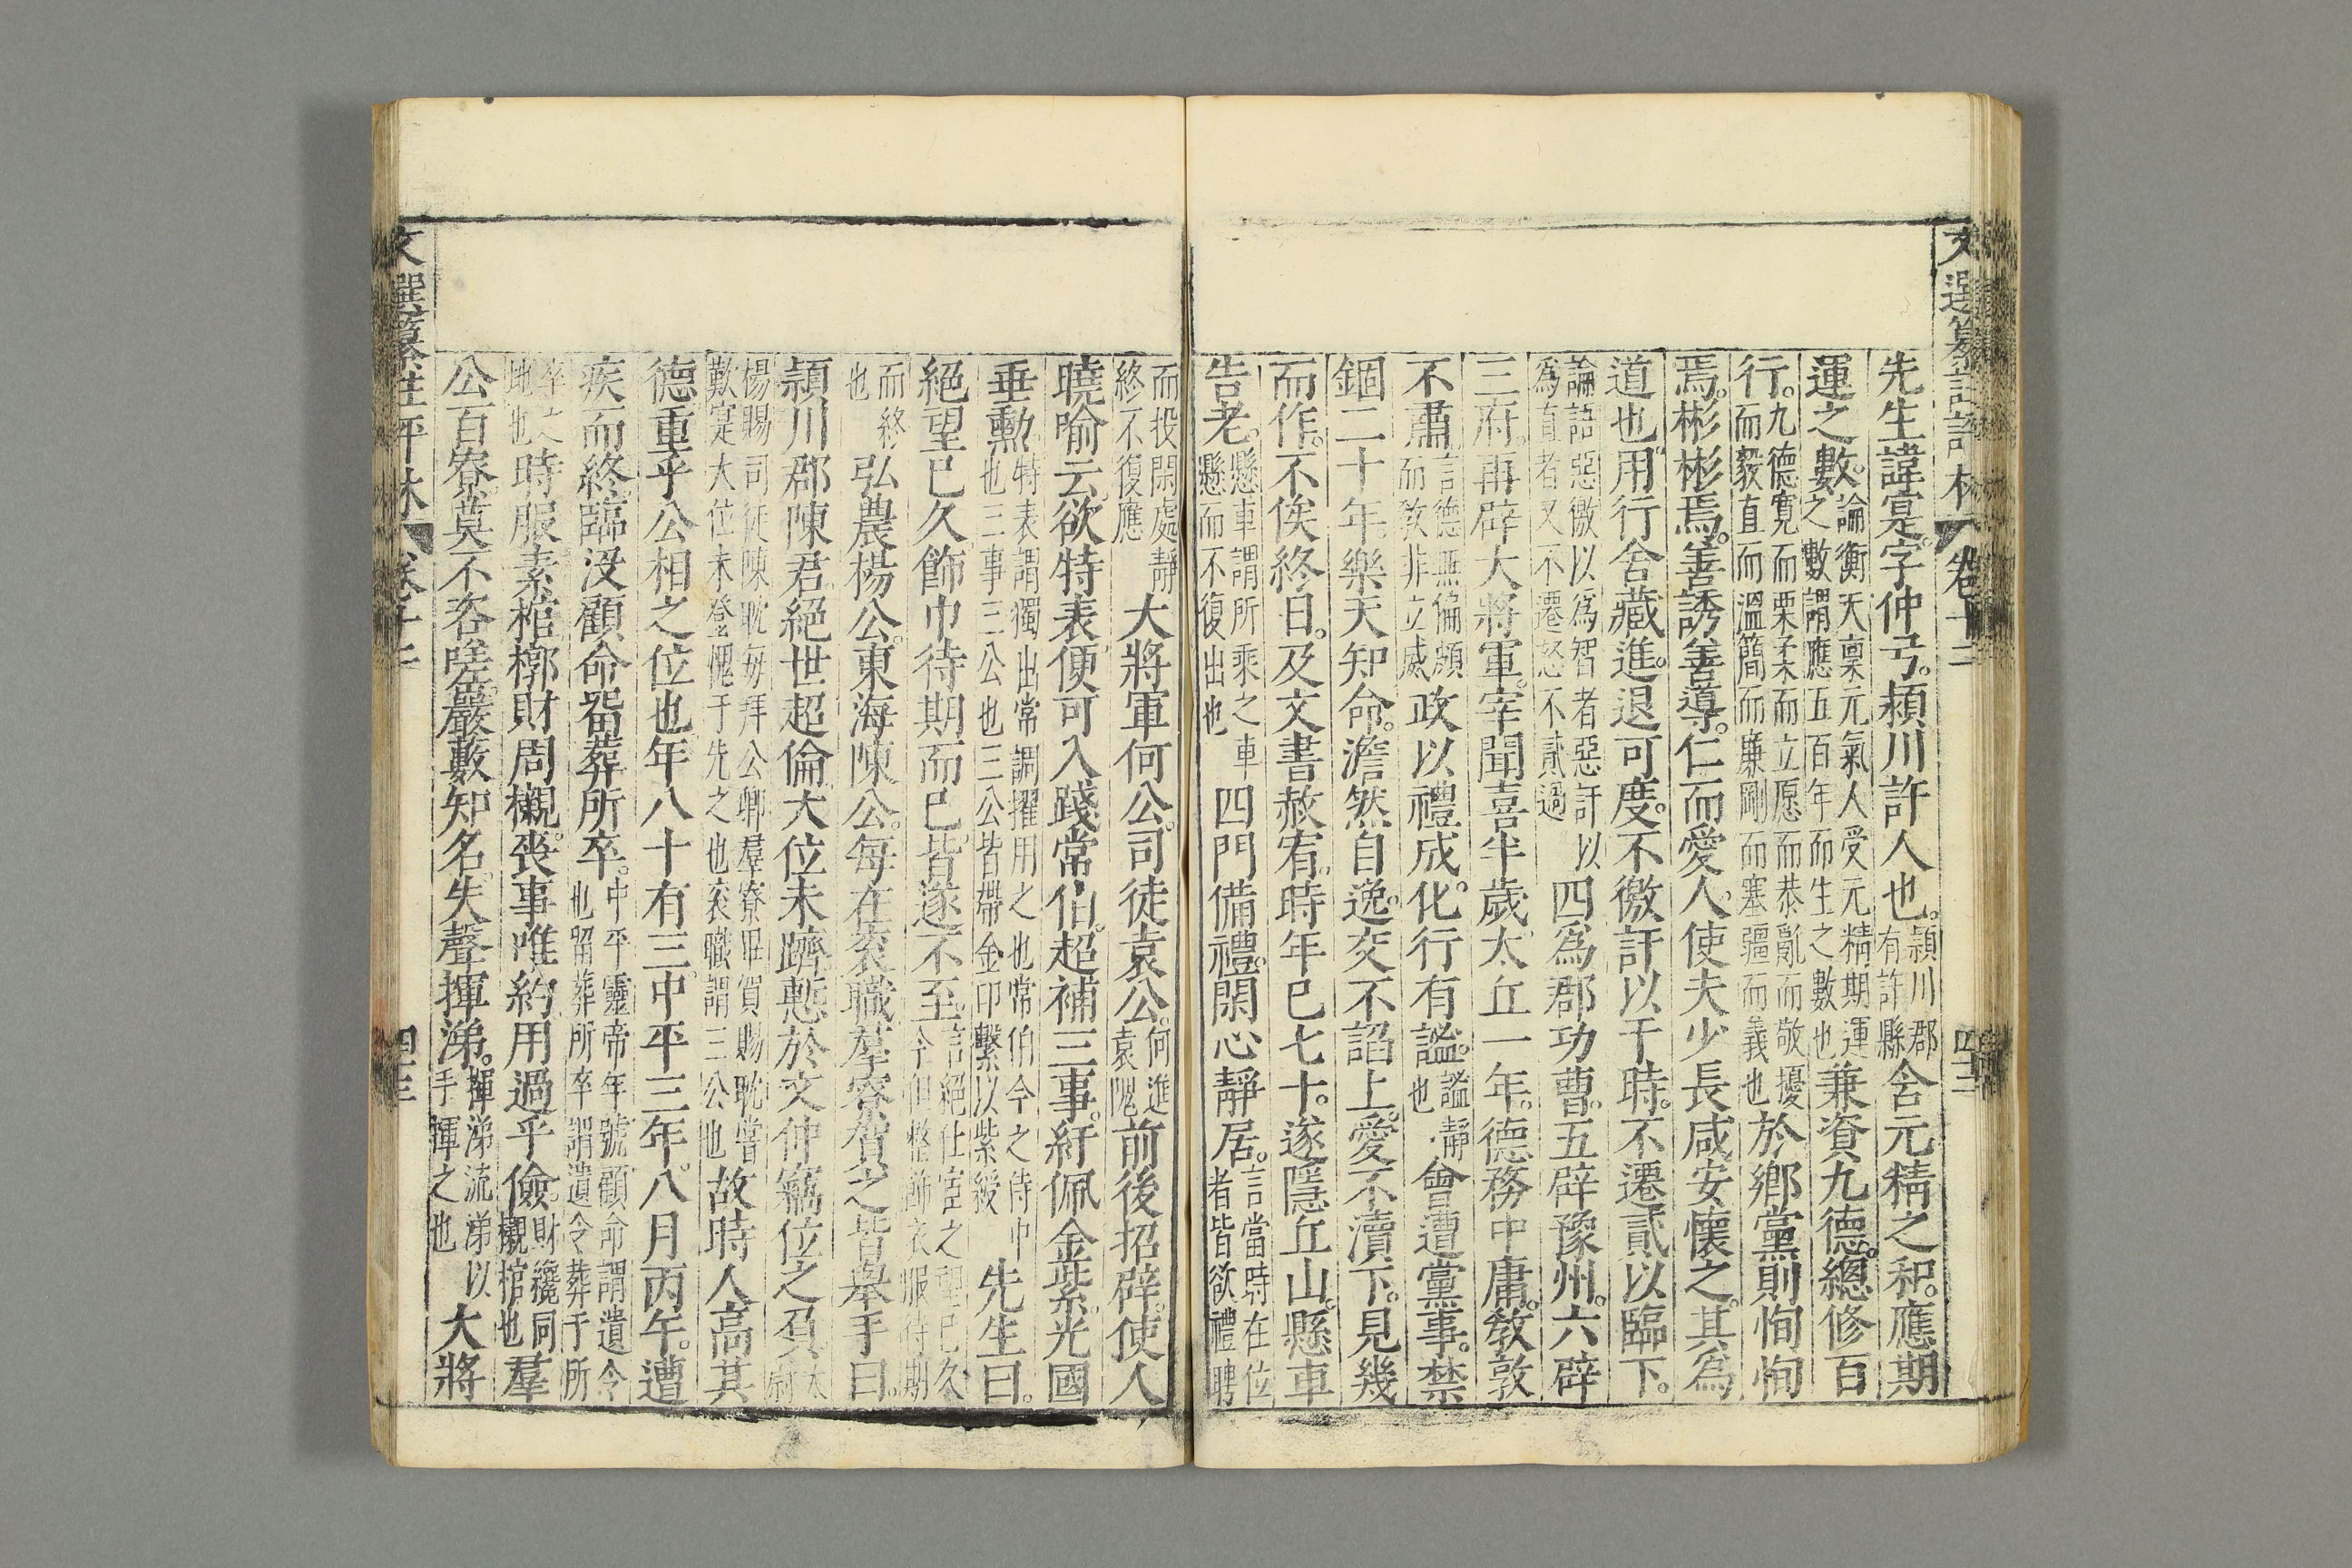 先生諱寔字仲弓。潁川許人也。潁川郡有許縣含元精之和。應期
運之數。論衡天稟元氣人受元精期運之數謂應五百年而生之數也兼資九德。總修百
行。九德寬而栗柔而立愿而恭亂而敬擾而毅直而溫簡而廉剛而塞彊而義也於鄉黨則恂恂
焉。彬彬焉。善誘善導。仁而愛人。使夫少長咸安懷之。其為
道也用行舍藏進。退可度。不徼訐以干時。不遷貳以臨下。
論語惡徼以為智者惡訐以為直者又不遷怒不貳過四為郡功曹。五辟豫州。六辟
三府。再辟大將軍。宰聞喜半歲太丘一年。德務中庸。教敦
不肅言德無偏頗而教非立威政以禮成。化行有謐。謐靜也會遭黨事。禁
錮二十年。樂天知命。澹然自逸。交不諂上。愛不瀆下。見幾
而作。不俟終日。及文書赦宥。時年已七十。遂隱丘山。懸車
告老。懸車謂所乘之車懸而不復出也四門備禮。閑心靜居。言當時在位者皆欲禮聘
而投閑處靜終不復應大將軍何公。司徒袁公。何進袁隗前後招辟。使人
曉喻云欲特表便可入踐常伯。超補三事。紆佩金紫。光國
垂勳。特表謂獨出常調擢用之也常伯今之侍中也三事三公也三公皆帶金印繫以紫綬先生曰。
絕望已久飾巾待期而已。皆遂不至。言絕仕宦之望已久今但整飾衣服待期
而終也弘農楊公。東海陳公。每在袞職羣寮賀之皆舉手曰。
潁川郡陳君。絕世超倫大位未躋慙於文仲竊位之負太尉
楊賜司徒陳耽每拜公卿羣寮畢賀賜耽嘗歎寔大位未登愧于先之也袞職謂三公也故時人高其
德重乎公相之位也年八十有三中平三年八月丙午。遭
疾而終臨沒顧命留葬所卒。中平靈帝年號顧命謂遺令也留葬所卒謂遺令葬于所
卒之地也時服素棺槨財周櫬。喪事唯約用過乎儉。財纔同櫬棺也羣
公百寮莫不咨嗟。巖藪知名。失聲揮涕。揮涕流涕以手揮之也大將
文選纂註評林 卷十二 四十二
文選纂註評林 卷十二 四十三